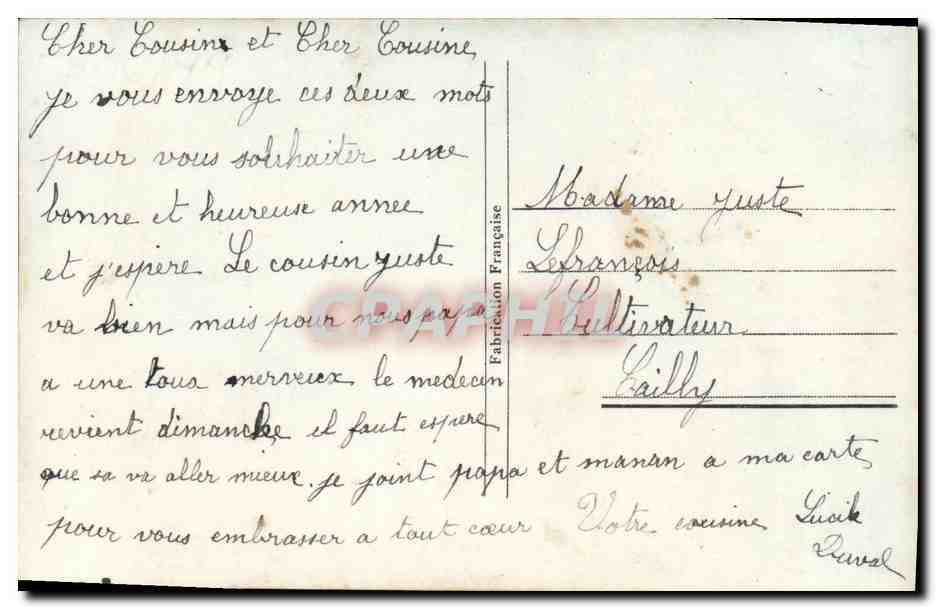 Cher Cousin et Cher Cousine
je vous envoye ces deux mots
pour vous souhaiter une
bonne et heureuse annee
et j'espere Le cousin juste
va bien mais pour nous papa
a une toux nerveux le medecin
revient dimanche il faut espere
que sa va aller mieux. je joint papa et manan a ma carte
pour vous embrasser a tout cœur Votre cousine Lucile
Duval
Fabrication Française
Madame juste
Lefrançois
Cultivateur
Cailly
CPAPHIL